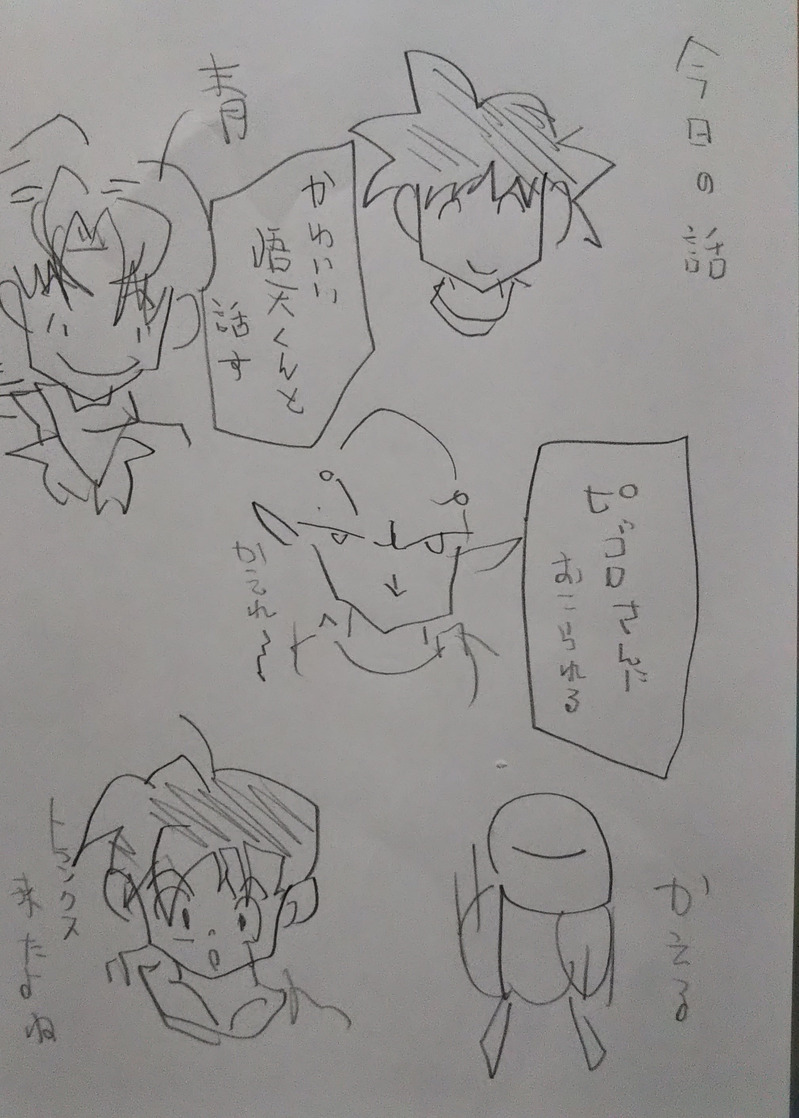 今日の話
かわいい
悟天くんと
話す
青
ピッコロさんに
おこられる
かえれ〜
かえる
トランクス
来たよね